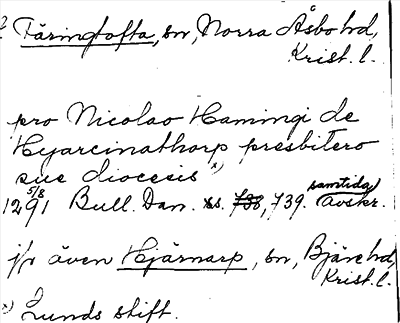 ? Färingtofta, sn, Norra Åsbo hd,
Krist. l.
pro Nicolao Hamingi de
Hyarcinathorp presbitero
sue diocesis x)
5/8
samtida
1291 Bull. Dan. ss. 738, 739. avskr.
jfr även Hjärnarp, sn, Bjäre hd,
Krist. l.
x) Lunds stift.